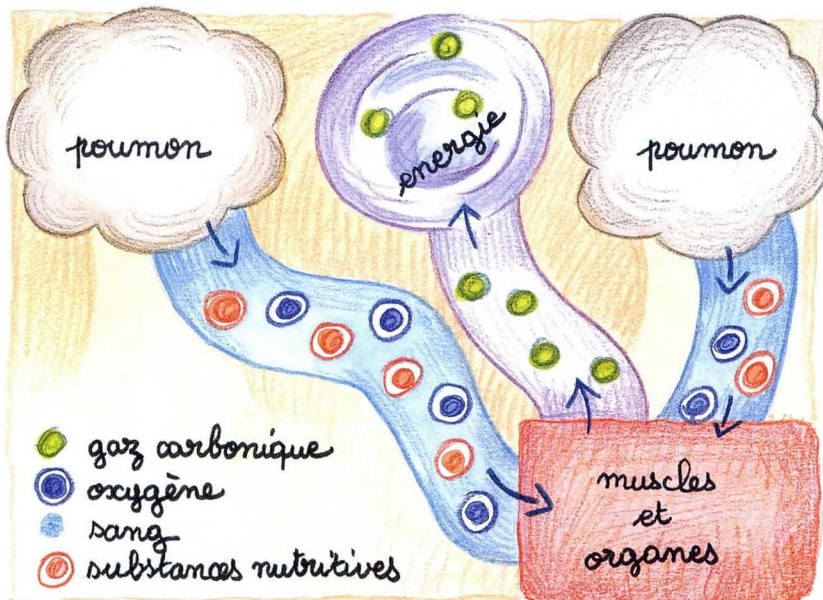 poumon
energie
poumon
gaz carbonique
oxygène
sang
substances nutritives
muscles
et
organes